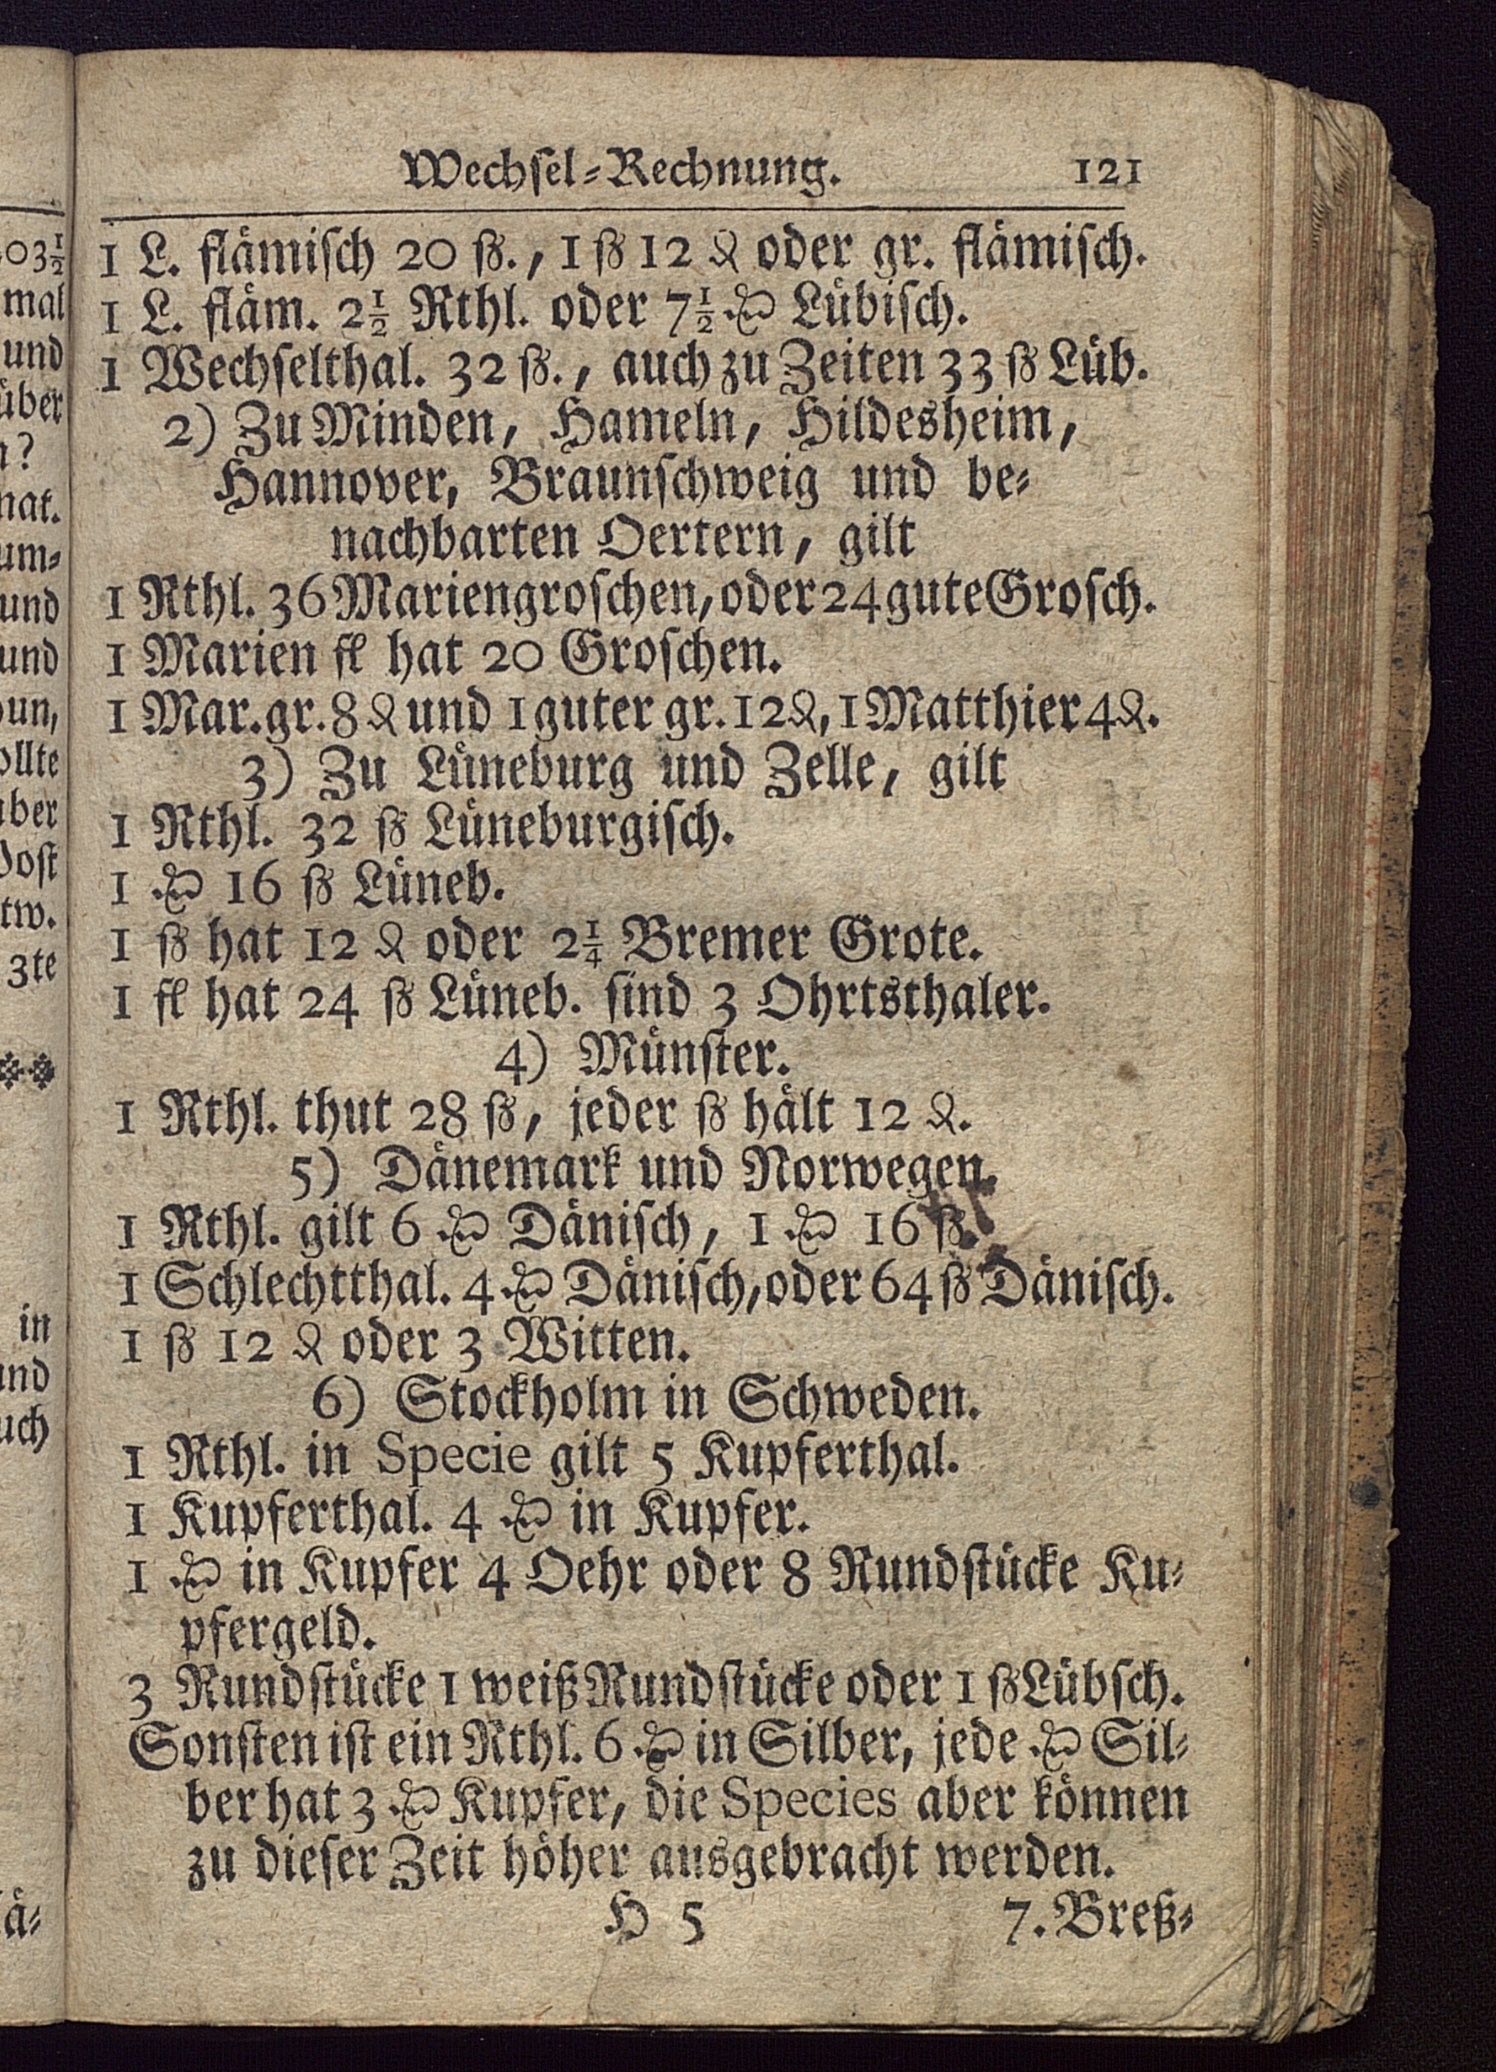 Wechsel-Rechnung. 121
1 L. flämisch 20 ß., 1 ß 12 ₰ oder gr. flämisch.
1 L. fläm. 2½ Rthl. oder 7½ ℳ Lübisch.
1 Wechselthal. 32 ß., auch zu Zeiten 33 ß Lüb.
2) Zu Minden, Hameln, Hildesheim,
Hannover, Braunschweig und be-
nachbarten Oertern, gilt
1 Rthl. 36 Mariengroschen, oder 24 gute Grosch.
1 Marien fl hat 20 Groschen.
1 Mar. gr. 8 ₰ und 1 guter gr. 12 ₰, 1 Matthier 4 ₰.
3) Zu Lüneburg und Zelle, gilt
1 Rthl. 32 ß Lüneburgisch.
1 ℳ 16 ß Lüneb.
1 ß hat 12 ₰ oder 2¼ Bremer Grote.
1 fl hat 24 ß Lüneb. sind 3 Ohrtsthaler.
4) Münster.
1 Rthl. thut 28 ß, jeder ß hält 12 ₰.
5) Dänemark und Norwegen.
1 Rthl. gilt 6 ℳ Dänisch, 1 ℳ 16 ß.
1 Schlechtthal. 4 ℳ Dänisch, oder 64 ß Dänisch.
1 ß 12 ₰ oder 3 Witten.
6) Stockholm in Schweden.
1 Rthl. in Specie gilt 5 Kupferthal.
1 Kupferthal. 4 ℳ in Kupfer.
1 ℳ in Kupfer 4 Oehr oder 8 Rundstücke Ku-
pfergeld.
3 Rundstücke 1 weiß Rundstücke oder 1 ß Lübsch.
Sonsten ist ein Rthl. 6 ℳ in Silber, jede ℳ Sil-
ber hat 3 ℳ Kupfer, die Species aber können
zu dieser Zeit höher ausgebracht werden.
H 5 7. Breß-